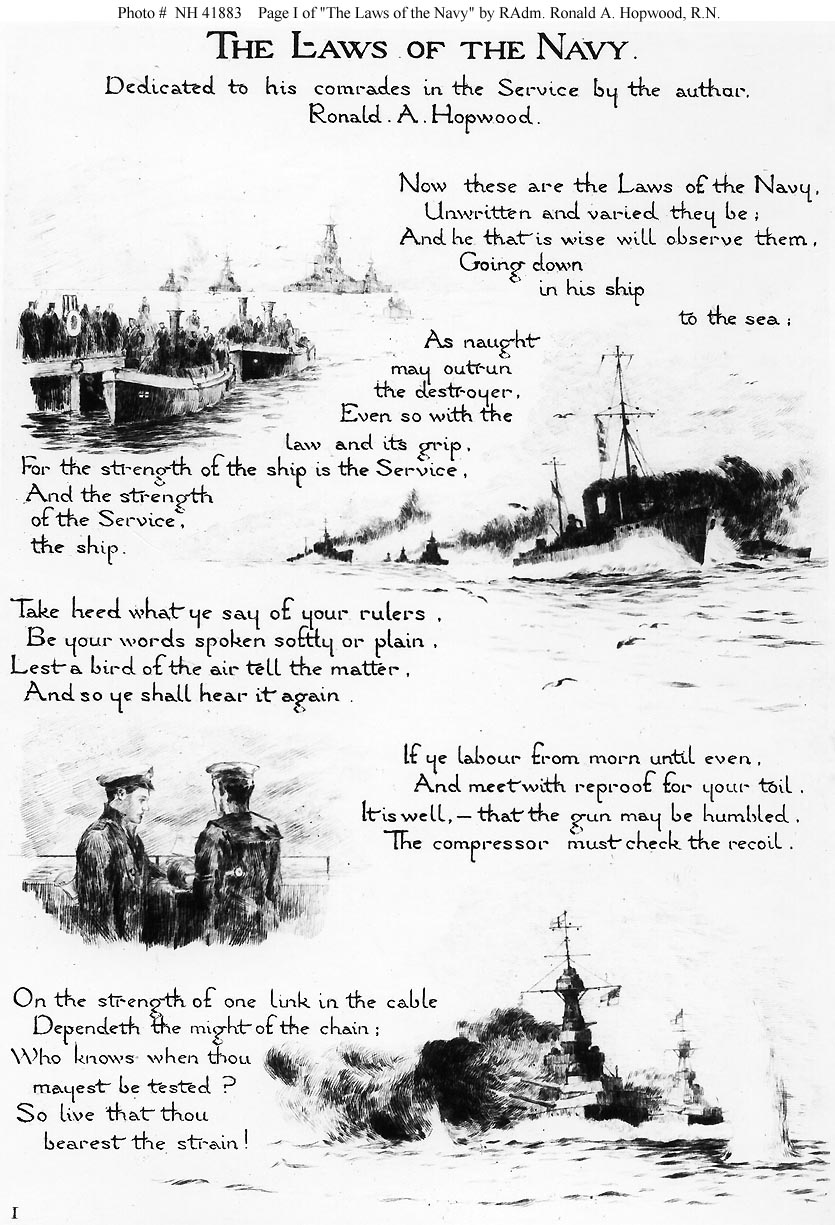 Photo # NH 41883 Page I of "The Laws of the Navy" by RAdm. Ronald A. Hopwood, R.N.
THE LAWS OF THE NAVY.
Dedicated to his comrades in the Service by the author.
Ronald . A . Hopwood .
Now these are the Laws of the Navy,
Unwritten and varied they be ;
And he that is wise will observe them,
Going down
in his ship
to the sea ;
As naught
may outrun
the destroyer,
Even so with the
law and its grip,
For the strength of the ship is the Service,
And the strength
of the Service,
the ship.
Take heed what ye say of your rulers ,
Be your words spoken softly or plain ,
Lest a bird of the air tell the matter ,
And so ye shall hear it again .
If ye labour from morn until even ,
And meet with reproof for your toil .
It is well, — that the gun may be humbled ,
The compressor must check the recoil .
On the strength of one link in the cable
Dependeth the might of the chain ;
Who knows when thou
mayest be tested ?
So live that thou
bearest the strain !
I